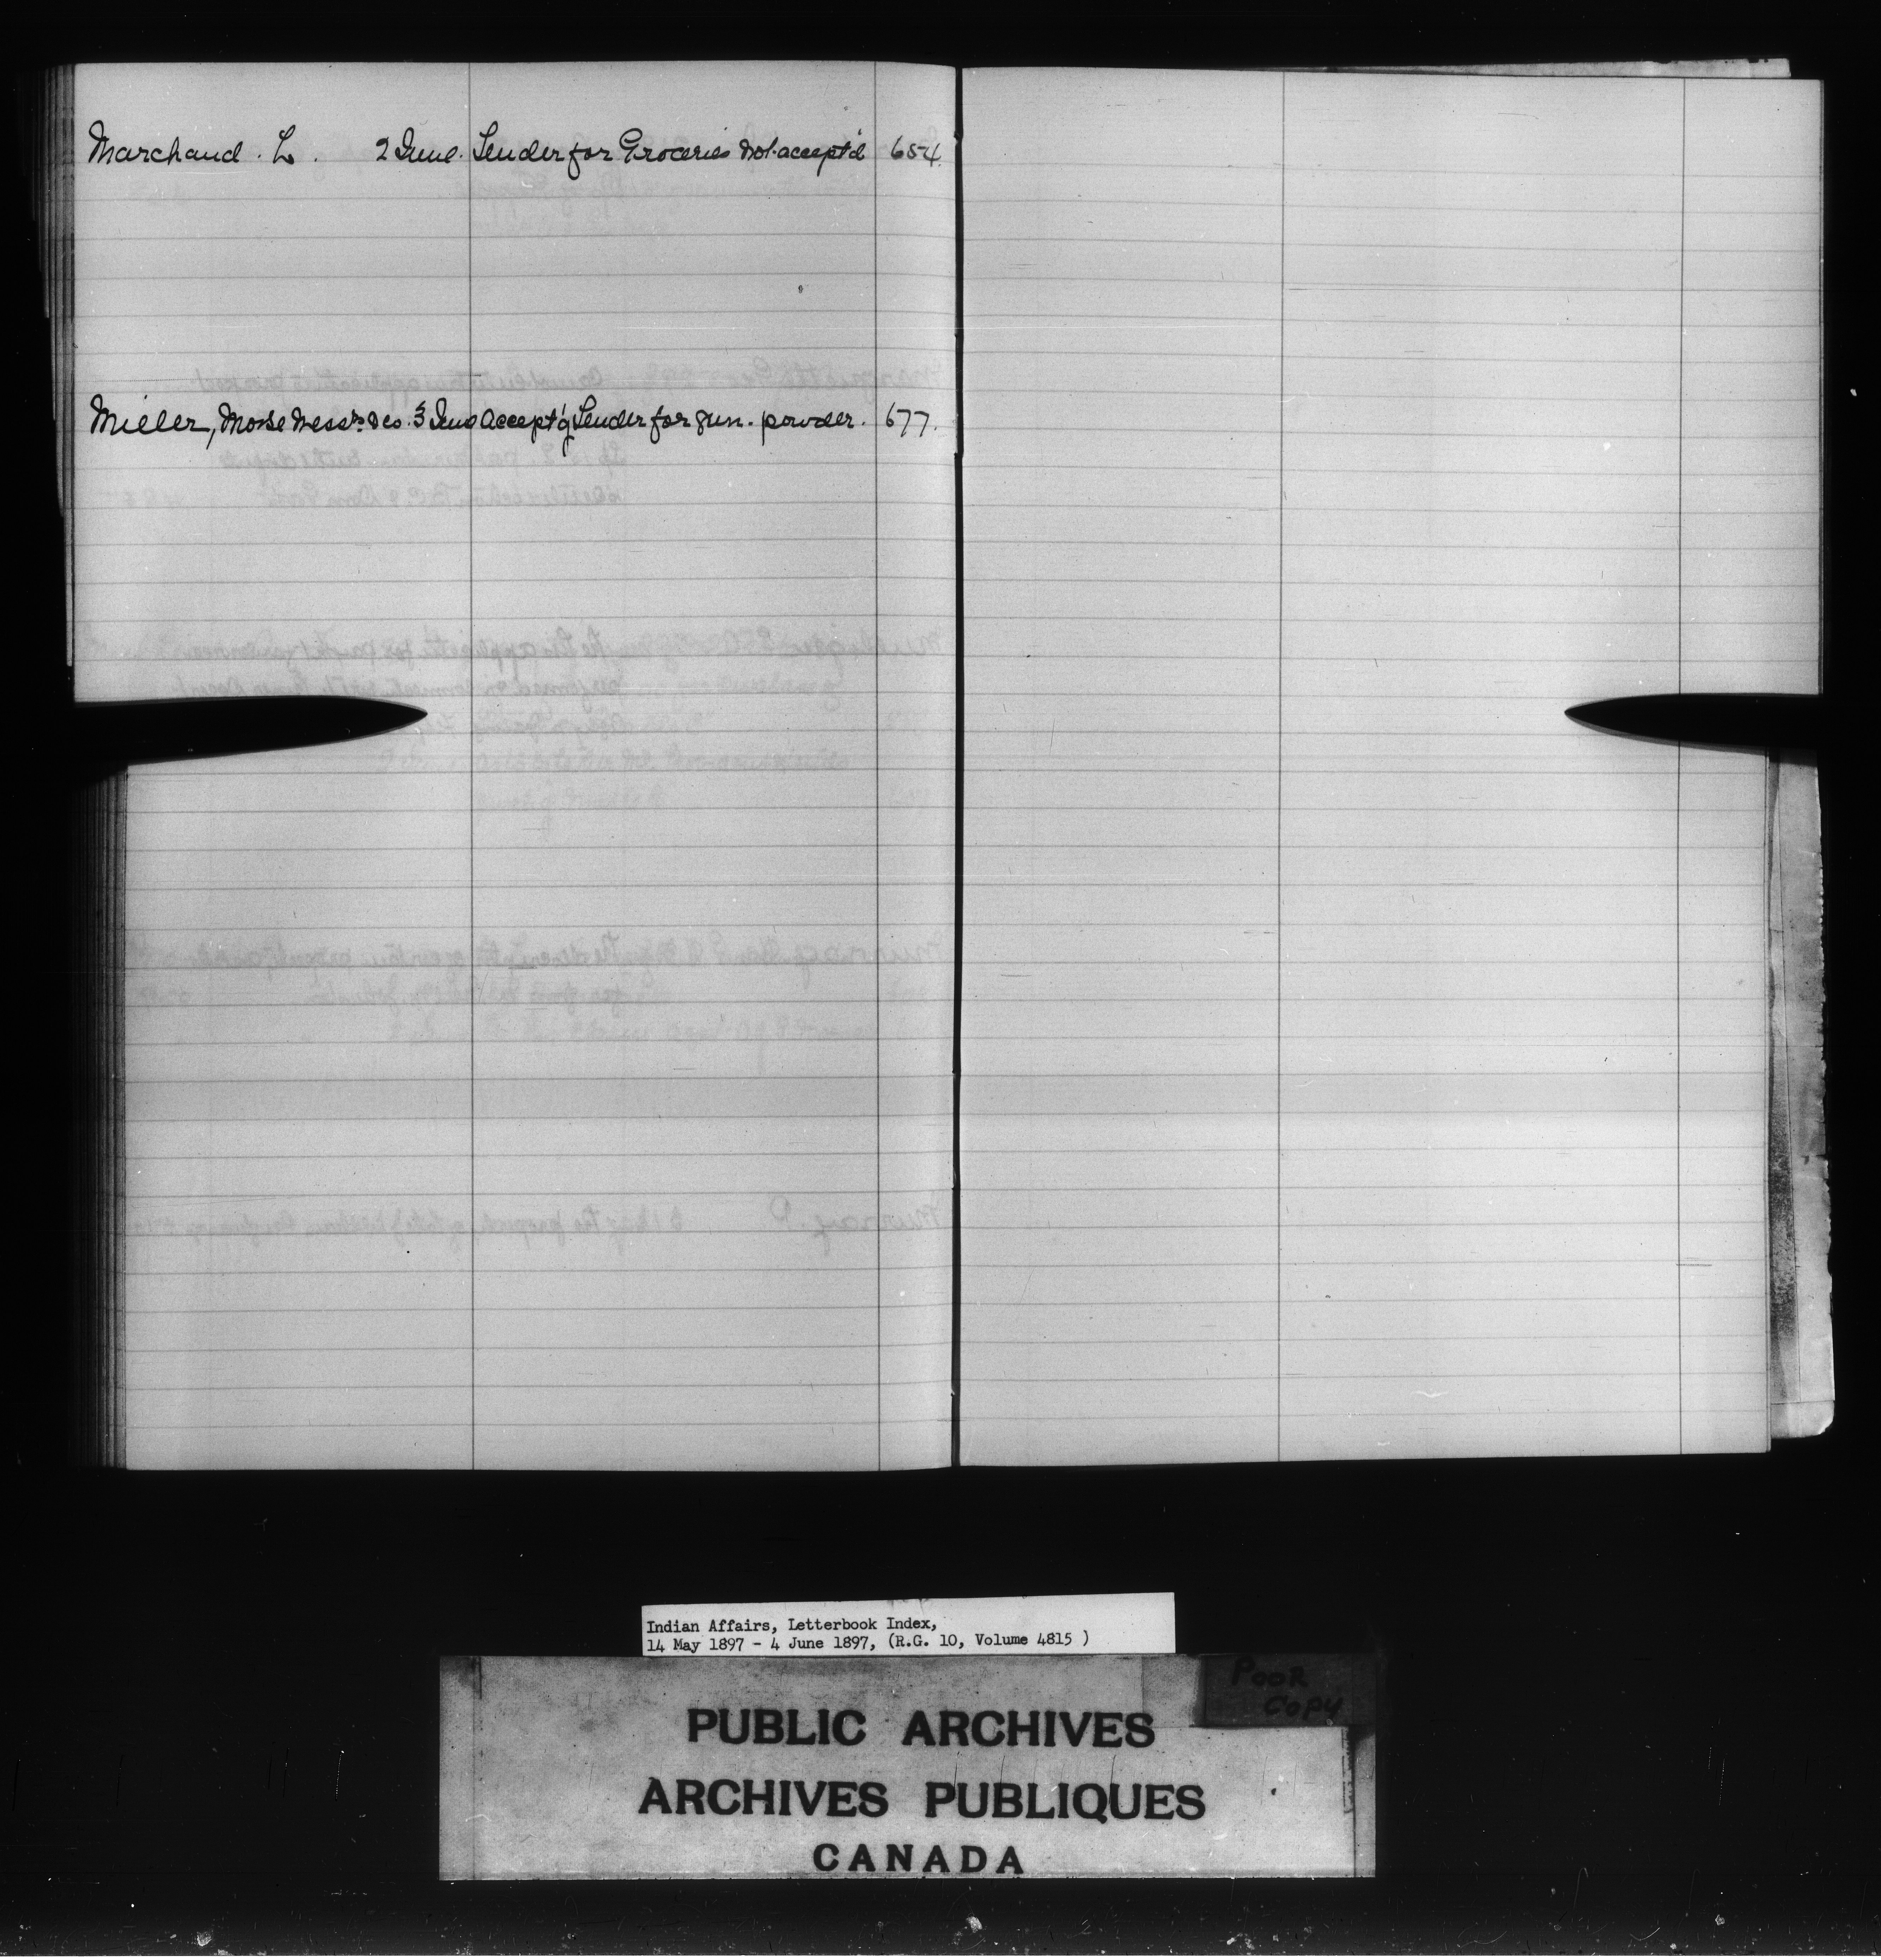 Marchand. L. 2 June. Tender for Groceries not accept'd 654.
Miller, Morse Messrs & Co. 3 June Accept'g Tender for gun. powder. 677.
Indian Affairs, Letterbook Index,
14 May 1897 - 4 June 1897, (R.G. 10, Volume 4815 )
POOR
COPY
PUBLIC ARCHIVES
ARCHIVES PUBLIQUES
CANADA